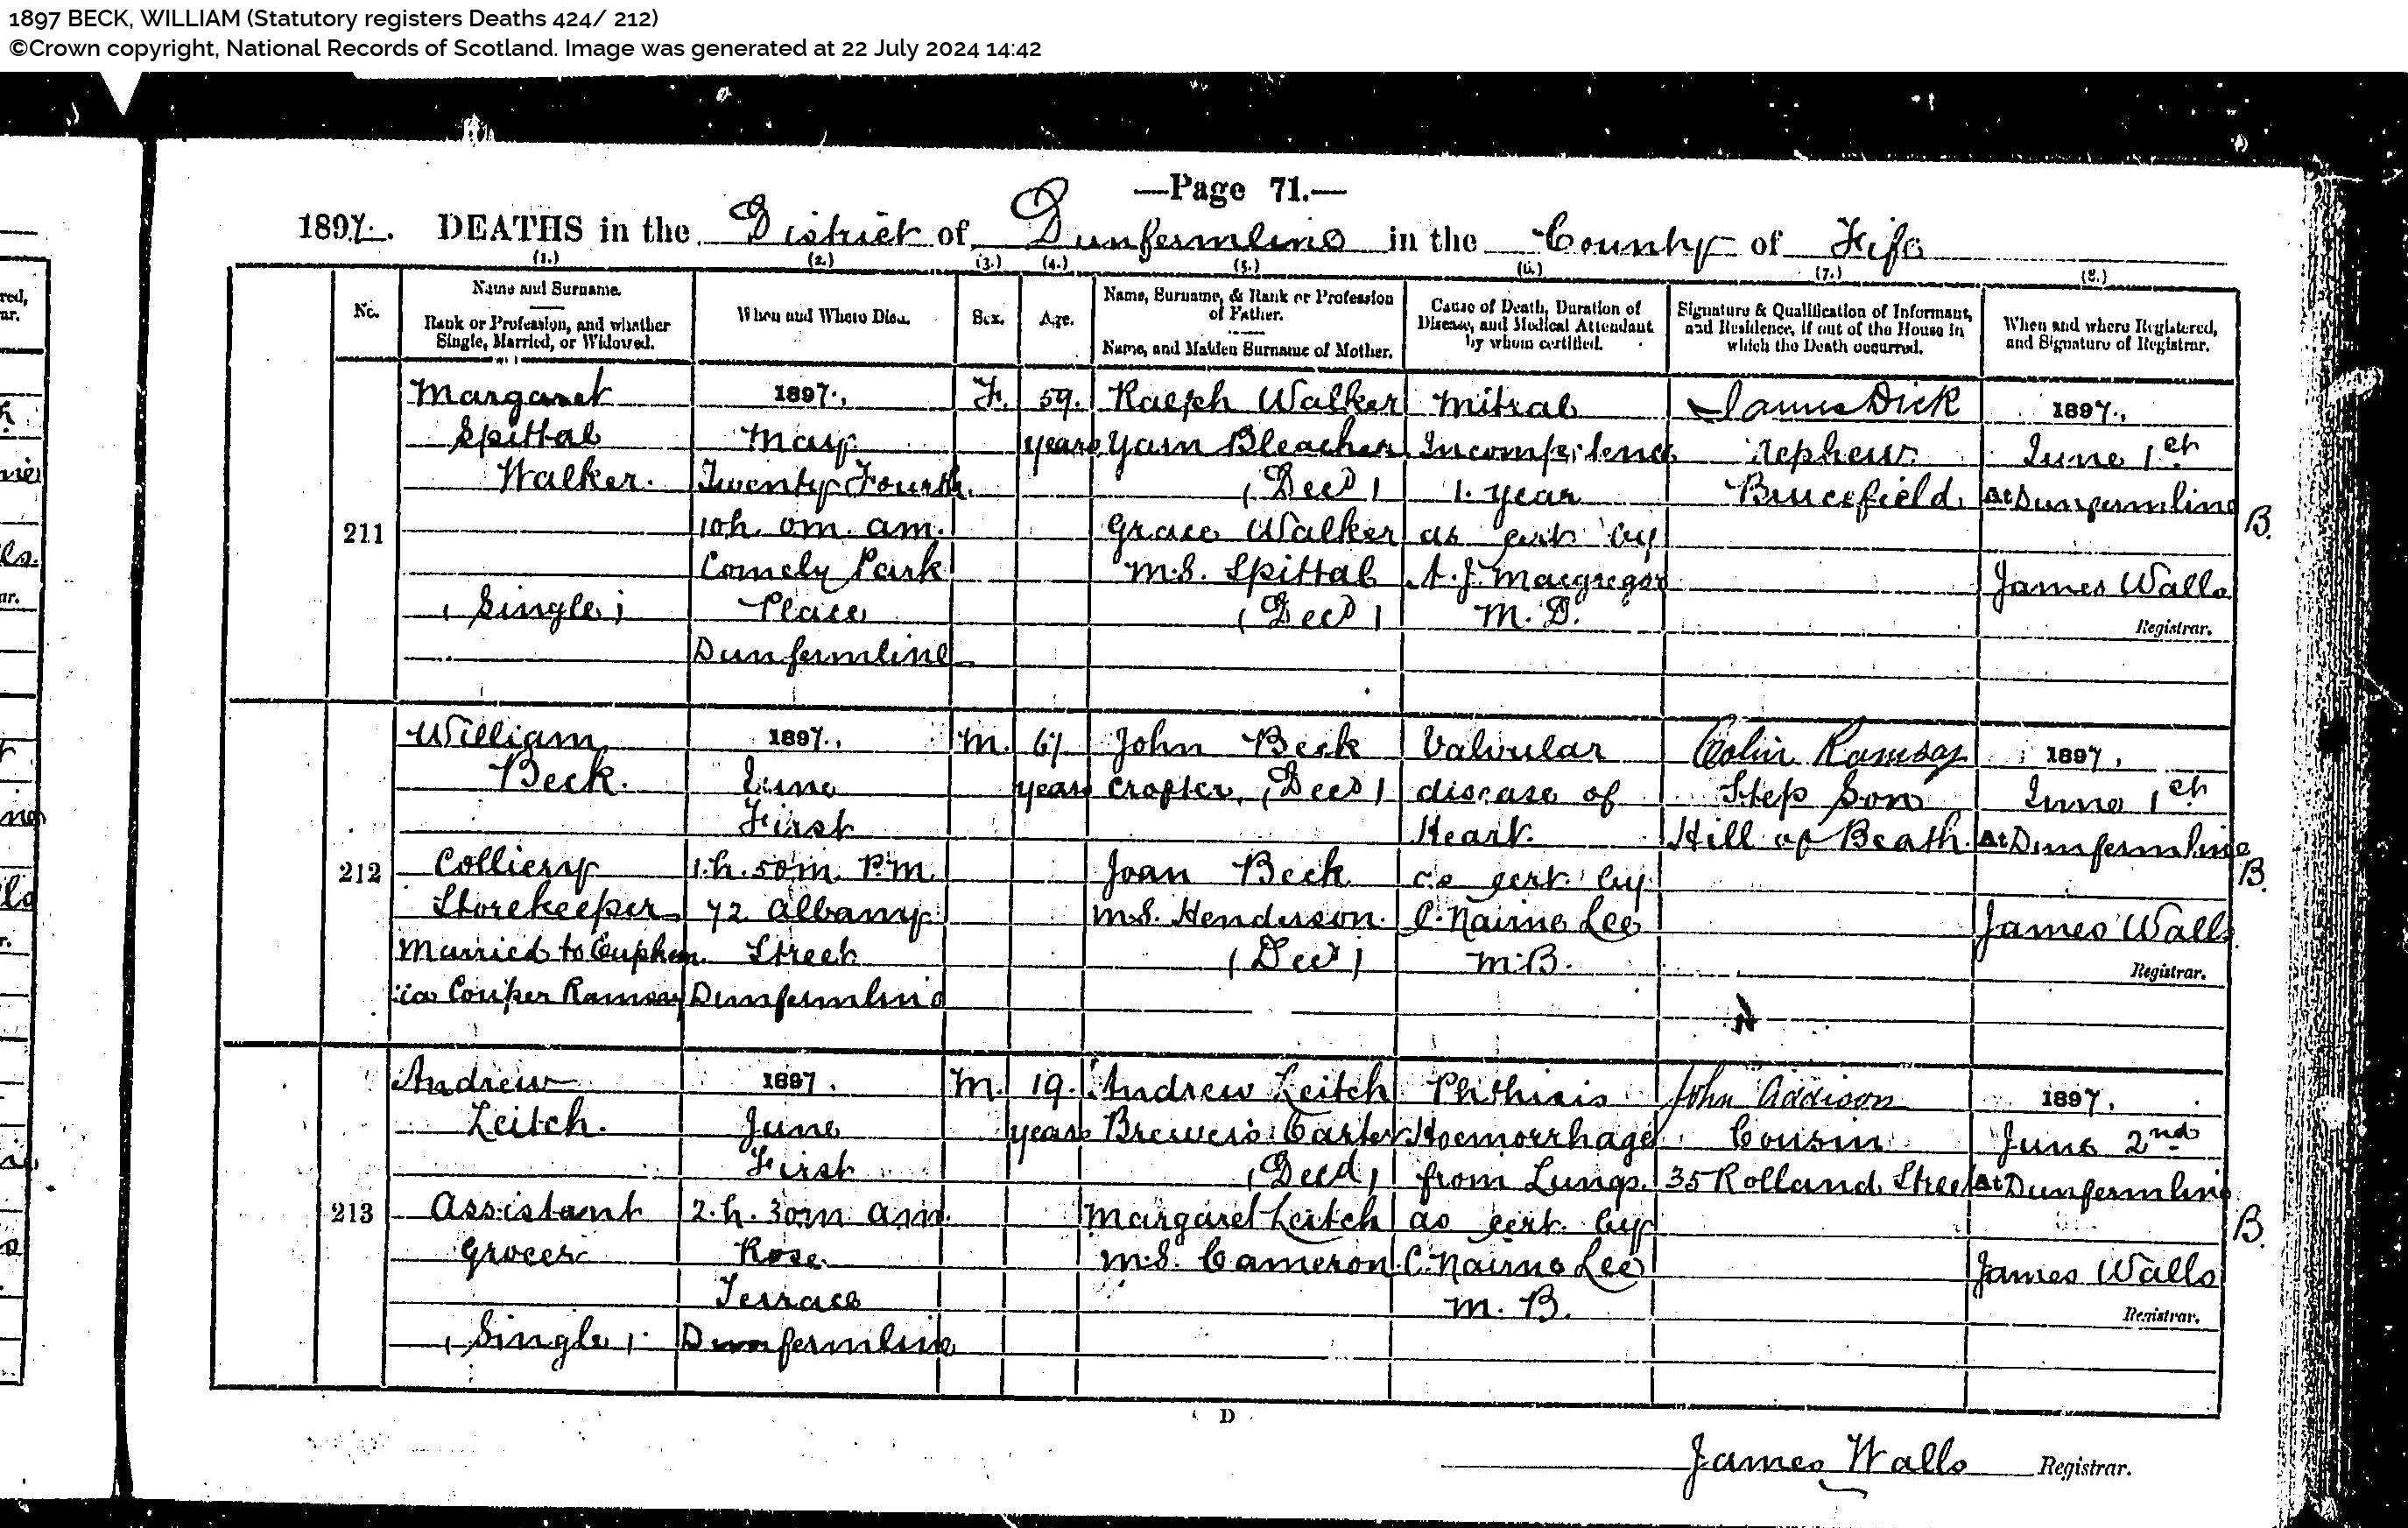 1897 BECK, WILLIAM (Statutory registers Deaths 424/ 212)
©Crown copyright, National Records of Scotland. Image was generated at 22 July 2024 14:42
—Page 71.—
1897. DEATHS in the District of Dunfermline in the County of Fife
(1.) (2.) (3.) (4.) (5.) (6.) (7.) (8.)
No.
Name and Surname.
Rank or Profession, and whether
Single, Married, or Widowed.
When and Where Died.
Sex.
Age.
Name, Surname, & Rank or Profession
of Father.
Name, and Maiden Surname of Mother.
Cause of Death, Duration of
Disease, and Medical Attendant
by whom certified.
Signature & Qualification of Informant,
and Residence, if out of the House in
which the Death occurred.
When and where Registered,
and Signature of Registrar.
211
Margaret
Spittal
Walker.
(Single)
1897.,
May
Twenty Fourth.
10h. 0m. am.
Comely Park
Place
Dunfermline
F.
59.
years
Ralph Walker
Yarn Bleacher
(Decd)
Grace Walker
M.S. Spittal
(Decd)
Mitral
Incompetence
1. year
as cert by
A. J. Macgregor
M.D.
James Dick
Nephew.
Brucefield
1897.,
June 1st
At Dunfermline
James Walls
Registrar.
B.
212
William
Beck.
Colliery
Storekeeper
Married to Euphem
:ia Couper Ramsay
1897.,
June
First
1.h. 50m. P.M.
72 Albany
Street
Dunfermline
M.
67
years
John Beck
Crofter, (Decd)
Joan Beck
M.S. Henderson.
(Decd)
Valvular
disease of
Heart.
as cert. by
C. Nairne Lee
M.B.
Colin Ramsay
Step Son
Hill of Beath.
1897,
June 1st
At Dunfermline
James Walls
Registrar.
B.
213
Andrew
Leitch.
Assistant
Grocer
(Single).
1897.
June
First
2.h. 30m am.
Rose
Terrace
Dunfermline
M.
19.
years
Andrew Leitch
Brewer's Carter
(Decd)
Margaret Leitch
M.S. Cameron.
Phthisis
Hoemorrhage
from Lungs.
as cert. by
C. Nairne Lee
M.B.
John Addison
Cousin
35 Rolland Street
1897.
June 2nd
At Dunfermline
James Walls
Registrar.
B.
D
James Walls Registrar.